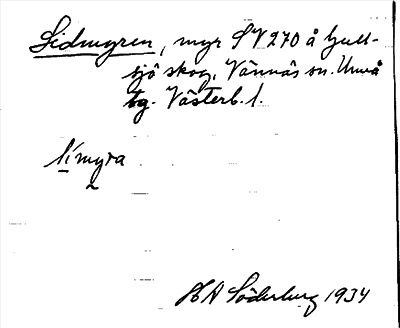 Lidmyren, myr SV 270 å Gull-
sjö skog, Vännäs sn. Umeå
tg. Västerb. l.
li´myra
2
H A Söderberg 1934